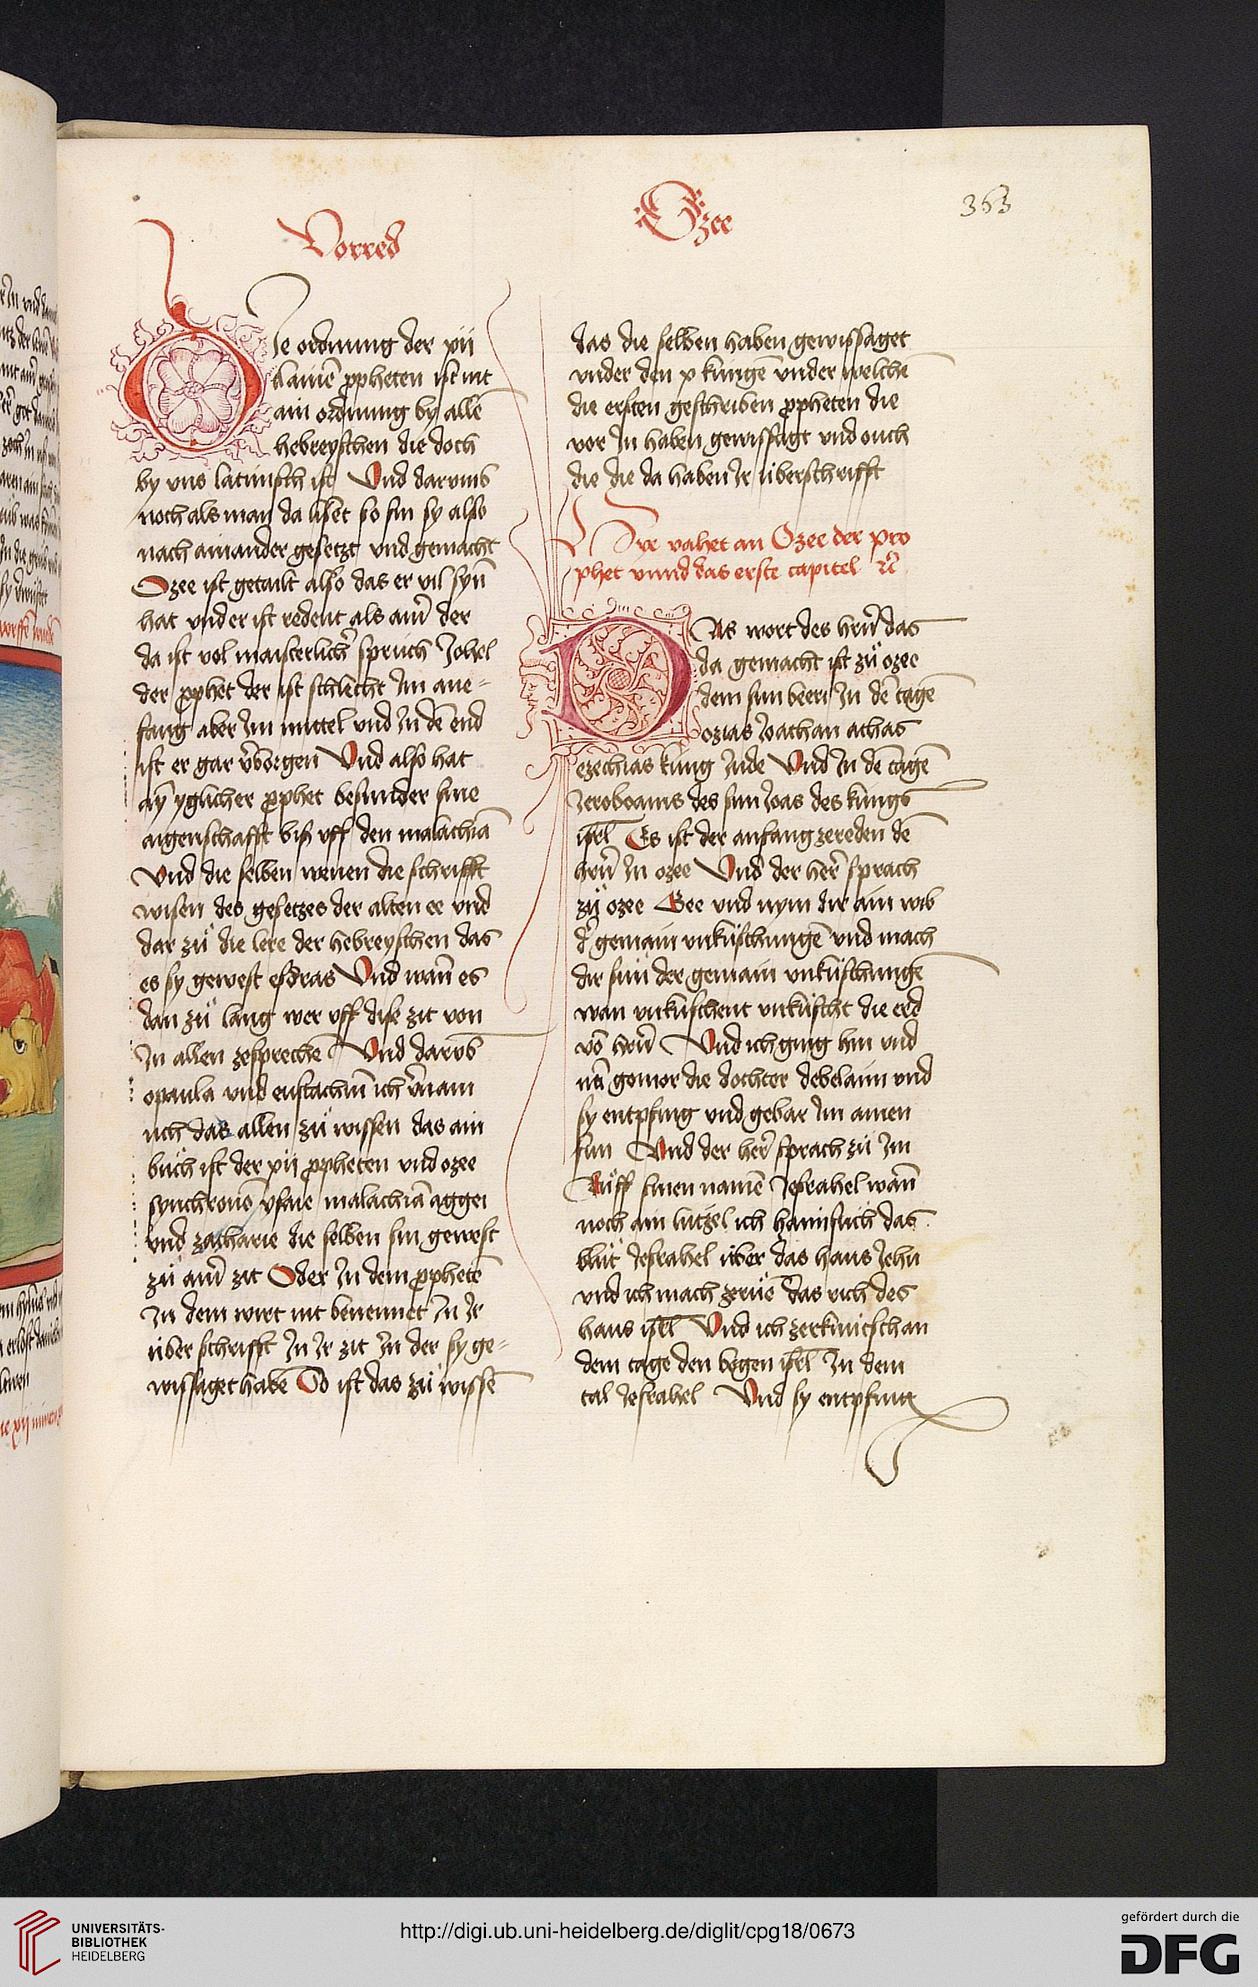 Vorred
Ozee
363
DIe ordnung der xij
klainē ppheten ist nit
ain ordnung by allē
hebreyschen die doch
by vns latinisch ist Vnd darumb
noch als man da liset so sin sy also
nach ainander gesetzt vnd gemacht
Ozee ist getailt also das er vil synn
hat vnd er ist redent als ainr̄ der
da ist vol maisterlichr̄ sprüch Johel
der pphet der ist schlecht Im ane-
fang aber Im mittel vnd In dē end
ist er gar v̄borgen Vnd also hat
ain yglicher pphet besunder sine
aigenschafft bis vff den malachiā
Vnd die selben wenen die schrifft
wisen des gesetzes der alten ee vnd
dar zů die lere der hebreyschen das
es sy gewest esdras Vnd wan̄ es
dan zů lang wer vff dise zit von
In allen zesprechē Vnd darūb
o paula vnd eustachiū ich v̄main
uch das allen zů wissen das ain
bůch ist der xij ppheten vnd ozee
synchronō ysaie malachiā aggei
vnd zacharie die selben sin gewest
zů ainr̄ zit Oder In dem pphetē
In dem wirt nit benennet In Ir
über schrifft In Ir zit In der sy ge-
wissaget habē So ist das zů wissē
das die selben haben gewissaget
vnder den x kungē vnder welchē
die ersten geschriben ppheten die
vor In haben gewissagt vnd ouch
die die da haben Ir überschrifft
Hye vahet an Ozee der pro
phet vnnd das erste capitel
DAs wort des hern̄ das
da gemacht ist zů ozee
dem sun beeri In dē tagē
ozias Joathan athas
ezechias küng Jude Vnd In dē tagē
Jeroboams des sun Joas des küngs
isrl̄ Es ist der anfang zereden dē
hern̄ In ozee Vnd der her̄ sprach
zů ozee Gee vnd nym dir ain wib
dr̄ gemain vnküschungē vnd mach
dir sün der gemain vnküschungē
wan vnküschent vnküscht die erd
vō hern̄ Vnd ich ging hin vnd
nā gomor die dochter debelaim vnd
sy entpfing vnd gebar Im ainen
sun Vnd der her̄ sprach zů Im
Růff sinen namē Jesrahel wan̄
noch ain lützel ich haimsůch das
blůt Jesrahel über das haus Jehu
vnd ich mach zerůē das rich des
haus isrl̄ Vnd ich zerknitsch an
dem tage den bogen isrl̄ In dem
tal Jesrahel Vnd sy entpfing
UNIVERSITÄTS-
BIBLIOTHEK
HEIDELBERG
http://digi.ub.uni-heidelberg.de/diglit/cpg18/0673
gefördert durch die
DFG